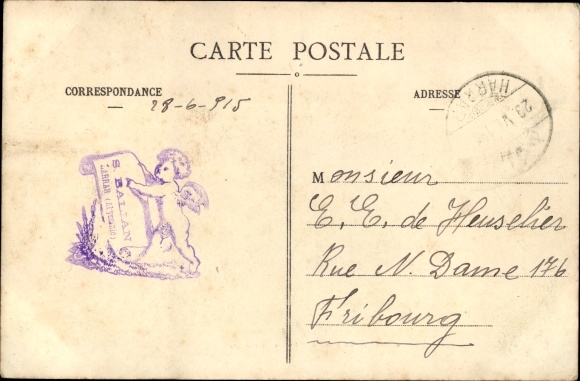 CARTE POSTALE
CORRESPONDANCE
28-6-915
S. BALIAN
HARRAR
ADRESSE
HARRAR
Monsieur
E. E. de Heuselier
Rue N. Dame 176
Fribourg